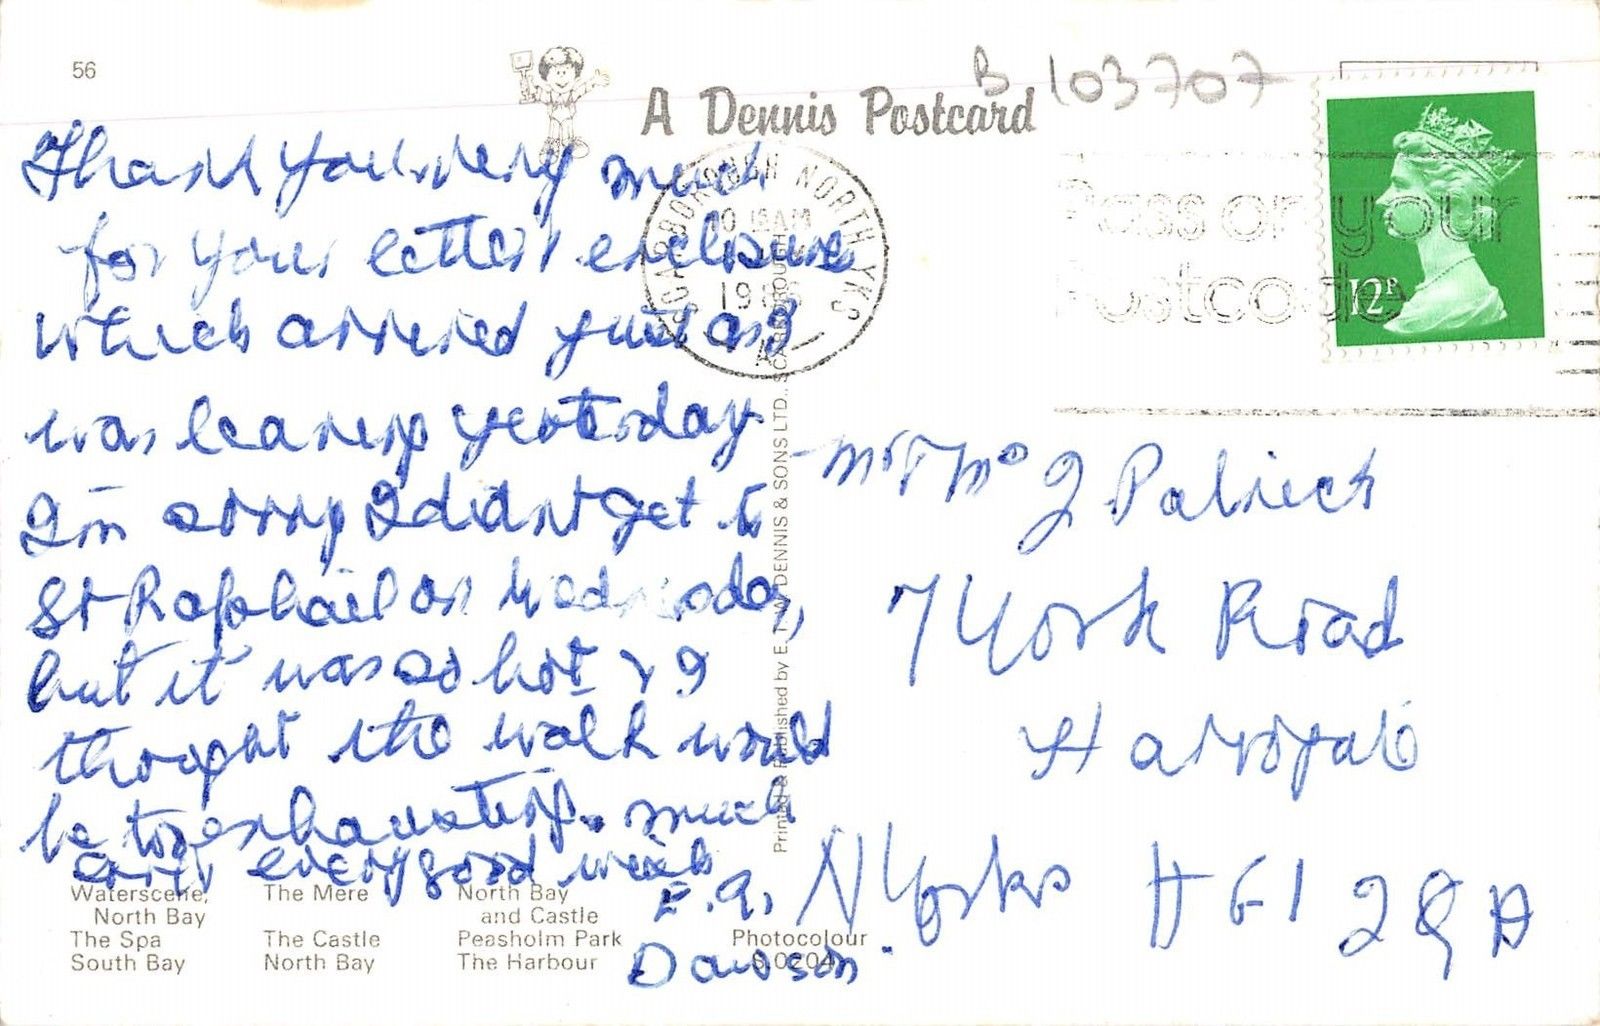 56
A Dennis Postcard
B 103707
Thank you very much
for your letter enclosure
which arrived just as I
was leaving yesterday
I'm sorry I didn't get to
St Raphael on Wednesday,
but it was so hot & I
thought the walk would
be too exhausting. much
every good wish
E. A.
Dawson
SCARBOROUGH NORTH YKS
10 15 AM
198
Pass on your
Postcode
12P
Mr & Mrs J Patrick
7 York Road
Harrogate
N Yorks HG1 2QA
Printed & Published by E. T. W. DENNIS & SONS LTD., SCARBOROUGH
Waterscene, North Bay
The Spa
South Bay
The Mere
The Castle
North Bay
North Bay and Castle
Peasholm Park
The Harbour
Photocolour
S.0204